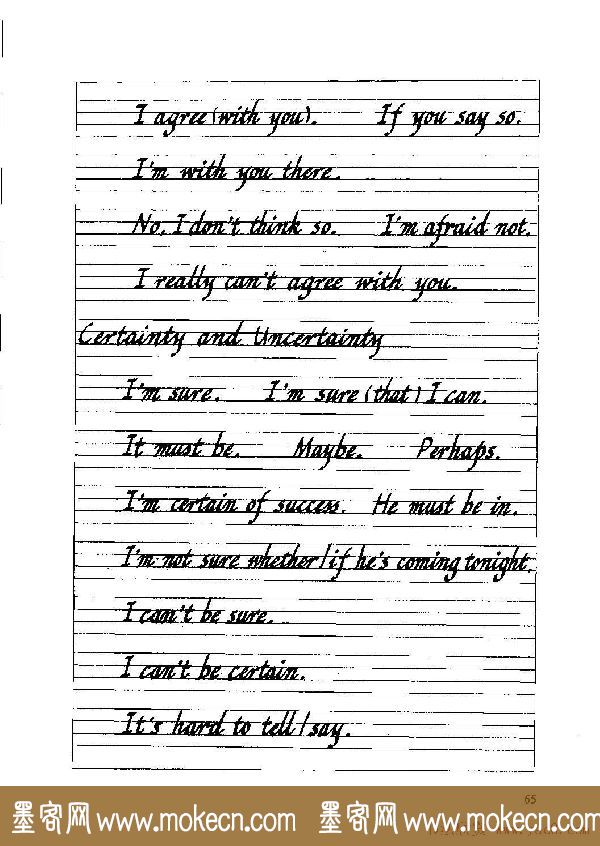 I agree (with you). If you say so.
I'm with you there.
No, I don't think so. I'm afraid not.
I really can't agree with you.
Certainty and Uncertainty
I'm sure. I'm sure (that) I can.
It must be. Maybe. Perhaps.
I'm certain of success. He must be in.
I'm not sure whether/if he's coming tonight.
I can't be sure.
I can't be certain.
It's hard to tell/say.
65
墨客网 www.mokecn.com 墨客网 www.mokecn.com